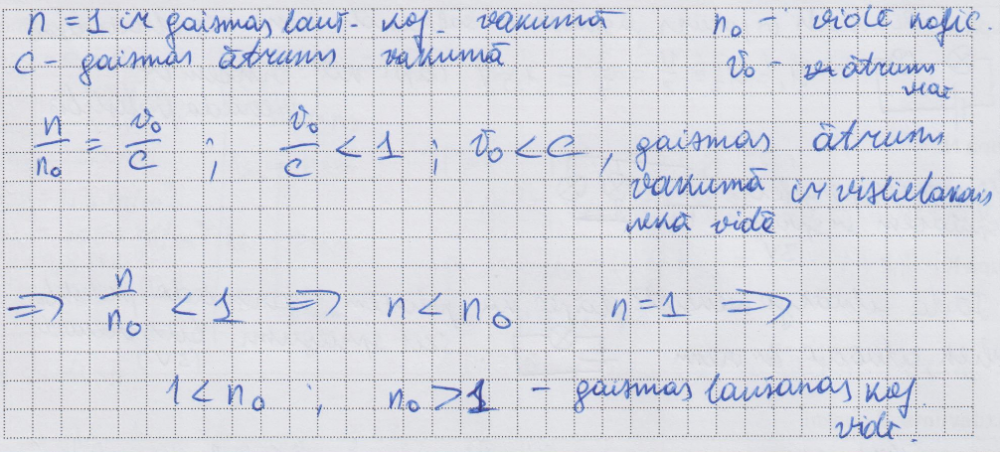 n = 1 ir gaismas lauš. koef. vakumā n₀ - vidē koefic.
c - gaismas ātrums vakumā v₀ - ātrums
n/n₀ = v₀/c ; v₀/c < 1 ; v₀ < c , gaismas ātrums
vakumā ir vislielākais
nekā vidē
=> n/n₀ < 1 => n < n₀ n = 1 =>
1 < n₀ ; n₀ > 1 - gaismas laušanas koef.
vidē.